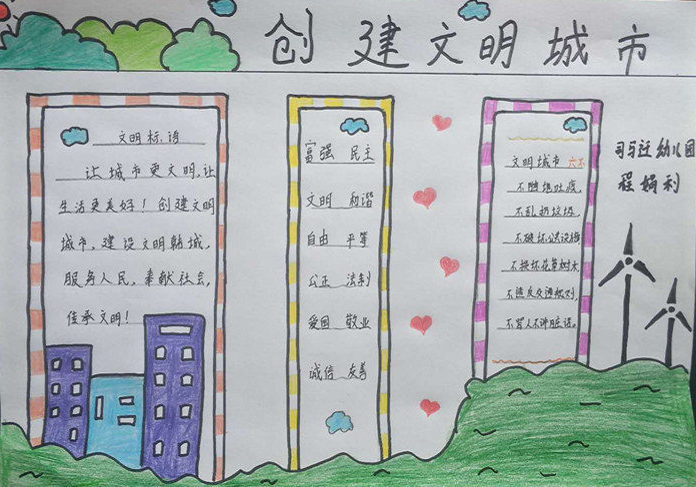 创建文明城市
文明标语
让城市更文明,让
生活更美好！创建文明
城市,建设文明韩城,
服务人民,奉献社会,
传承文明！
富强 民主
文明 和谐
自由 平等
公正 法制
爱国 敬业
诚信 友善
文明城市 六不
不随地吐痰,
不乱扔垃圾,
不破坏公共设施
不损坏花草树木
不违反交通规则,
不骂人不讲脏话。
司马迁幼儿园
程娟利